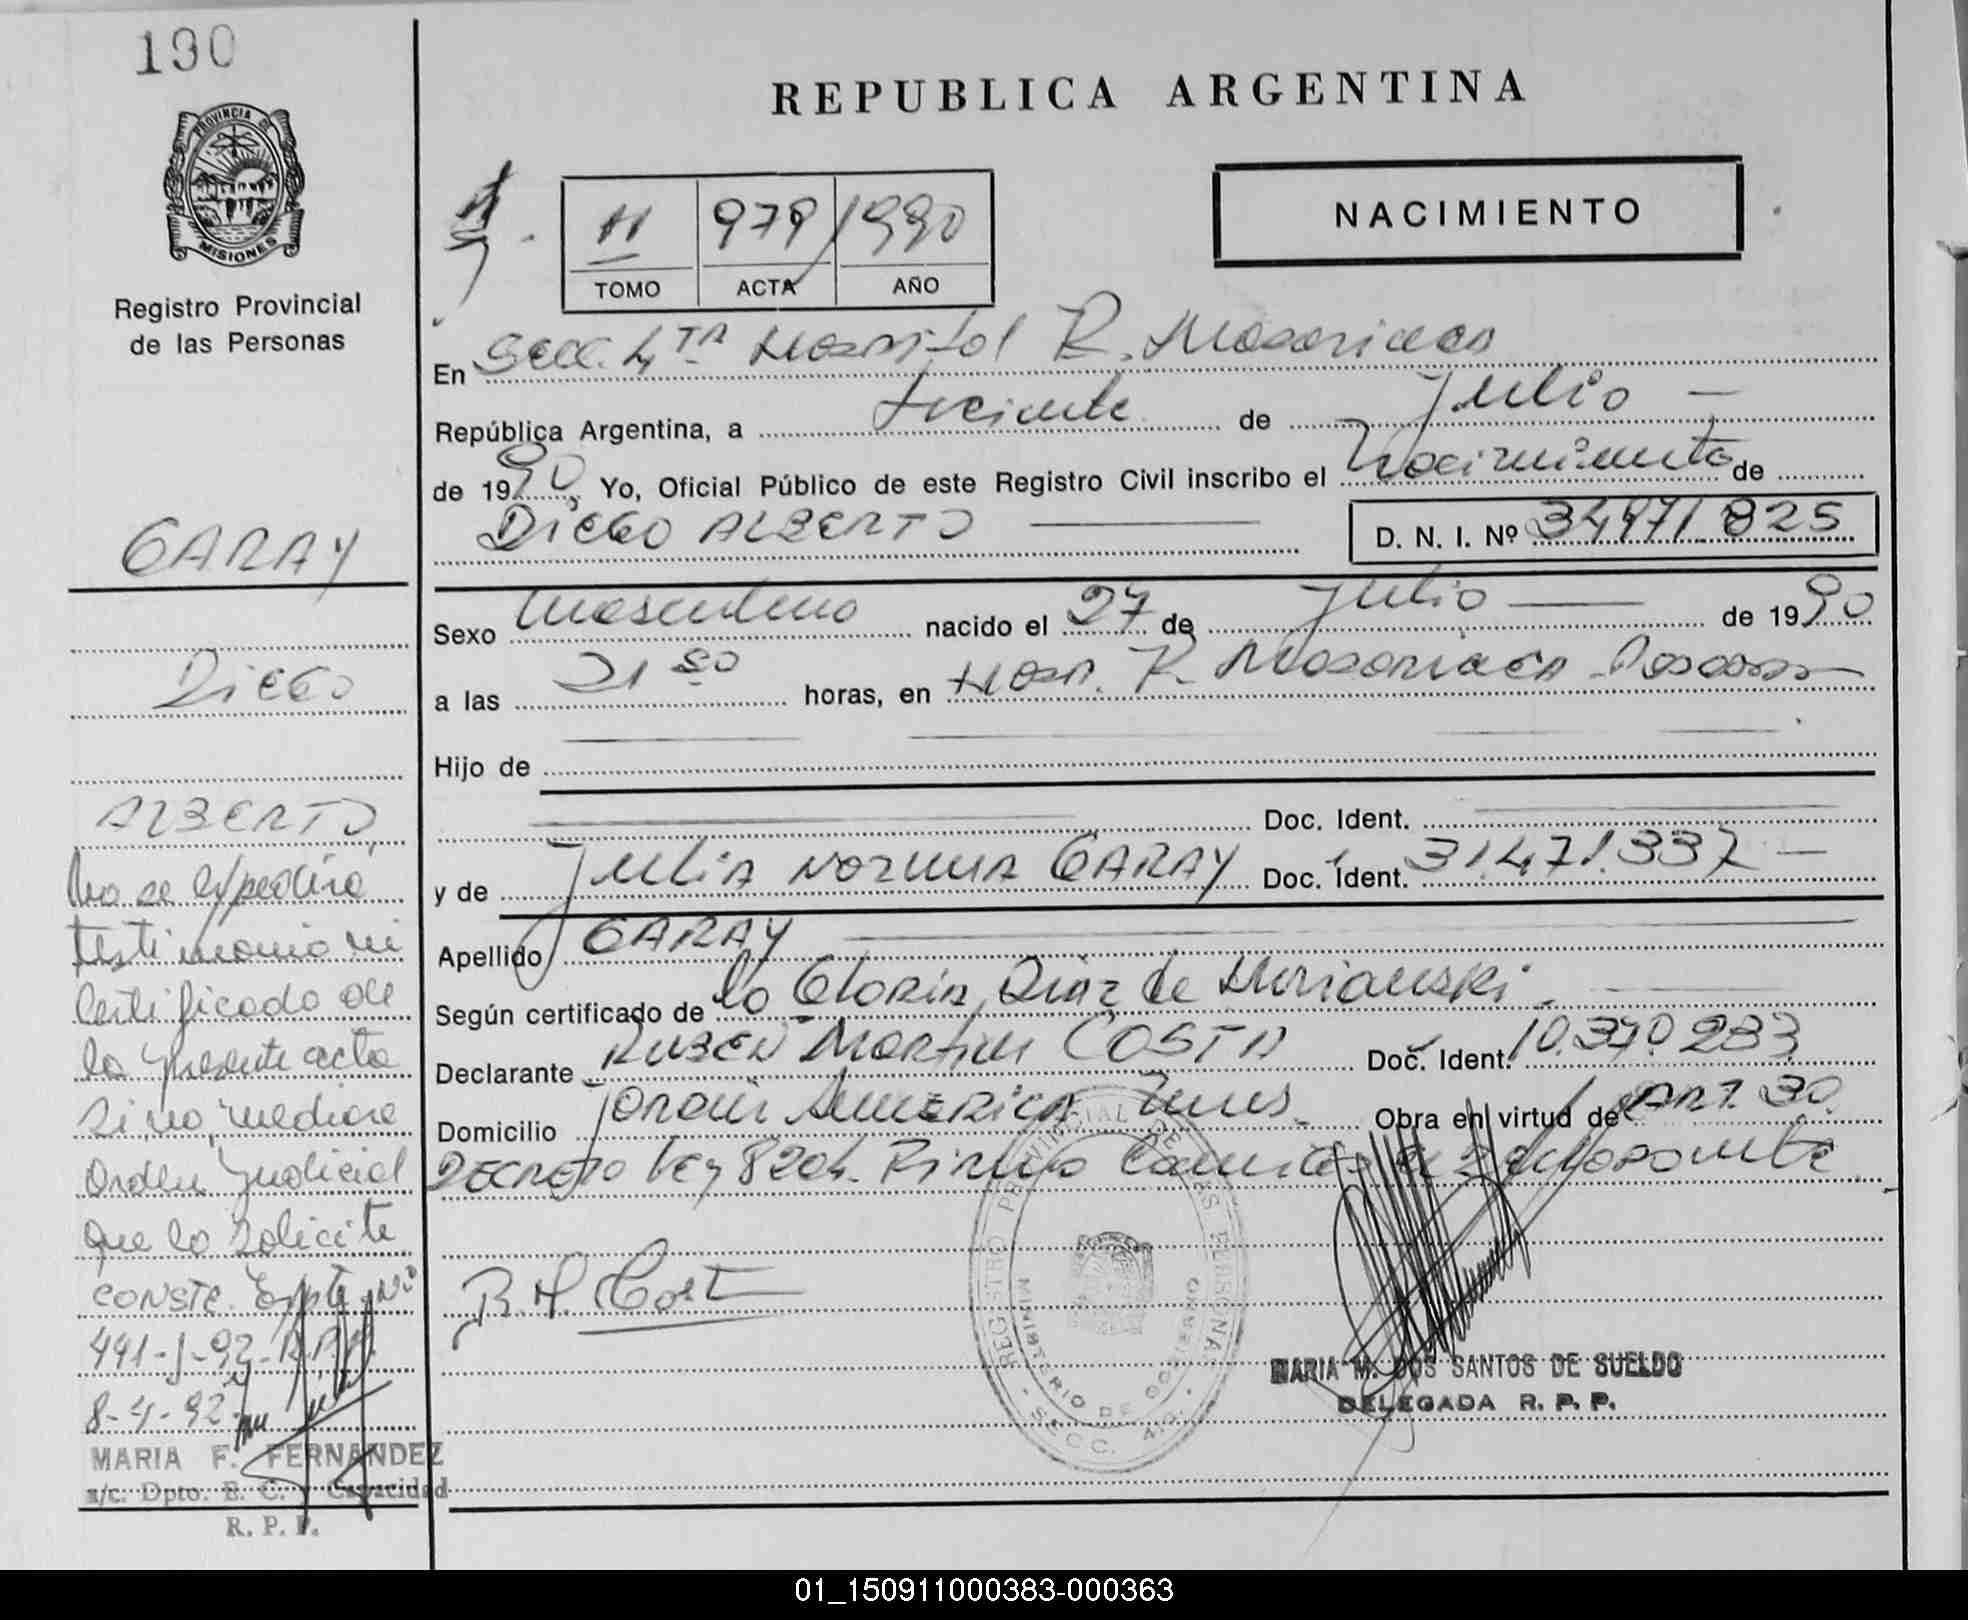 190
REPUBLICA ARGENTINA
PROVINCIA DE
MISIONES
Registro Provincial
de las Personas
II 979 1990
TOMO ACTA AÑO
NACIMIENTO
En Secc. 4TA Hospital R. Madariaga
República Argentina, a treinta de Julio
de 1990, Yo, Oficial Público de este Registro Civil inscribo el Nacimiento de
DIEGO ALBERTO
D. N. I. Nº 34971.825
Sexo masculino nacido el 27 de Julio de 1990
a las 21 50 horas, en Hosp. R. Madariaga Posadas
Hijo de
Doc. Ident.
y de Julia Norma GARAY Doc. Ident. 31.471.337
Apellido GARAY
Según certificado de la Gloria Diaz de
Declarante RUBEN Martin COSTA Doc. Ident. 10.370.283
Domicilio Jardin America Mnes. Obra en virtud de ART. 30
DECRETO Ley 8204.
R.M. Costa
REGISTRO PROVINCIAL DE LAS PERSONAS
MINISTERIO DE GOBIERNO
SECC. 4TA.
MARIA M. DOS SANTOS DE SUELDO
DELEGADA R. P. P.
GARAY
DIEGO
ALBERTO
No se expedirá
testimonio ni
certificado de
la presente acta
si no mediare
Orden Judicial
que lo solicite
CONSTE. Expte. Nº
441-J-92-R.P.P.
8-4-92
MARIA F. FERNANDEZ
a/c. Dpto. E. C. y Capacidad
R. P. P.
01_150911000383-000363